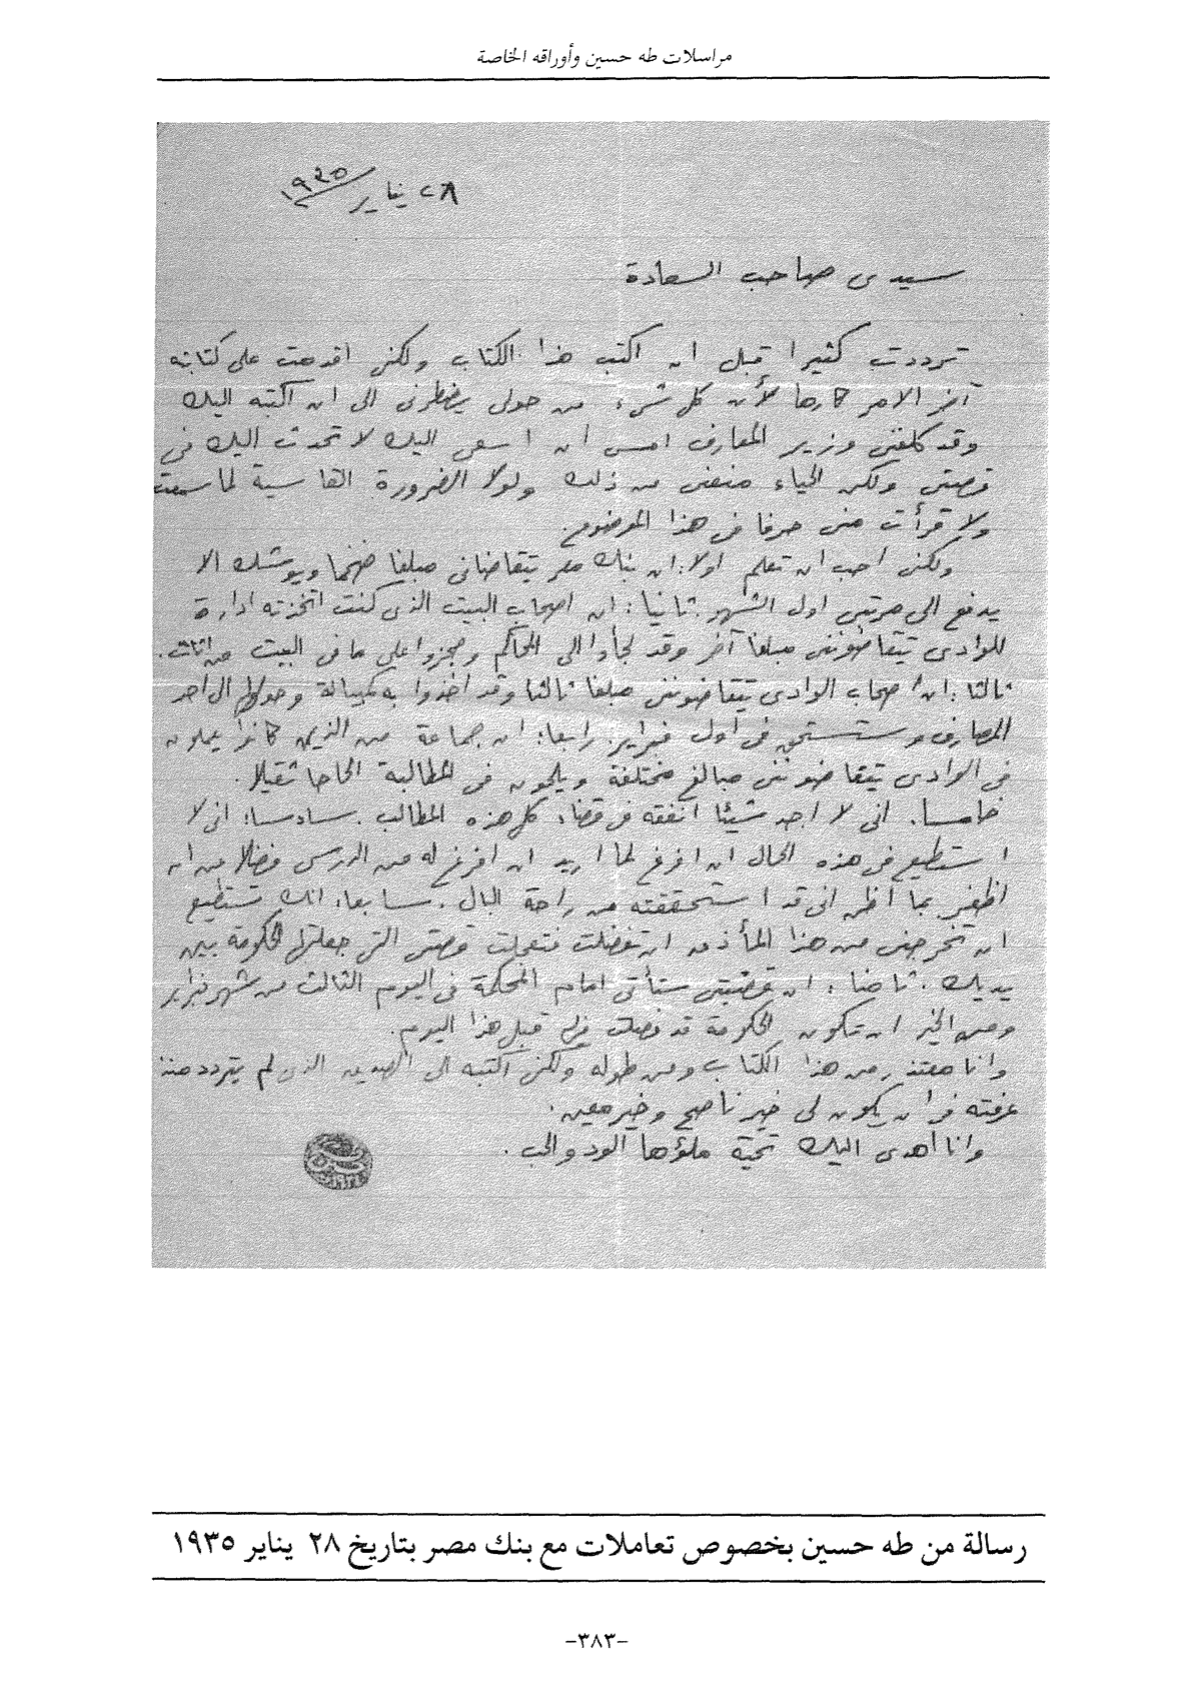 مراسلات طه حسين وأوراقه الخاصة
٢٨ يناير ١٩٣٥
سيدى صاحب السعادة
ترددت كثيرا قبل ان اكتب هذا الكتاب ولكنى اقدمت على كتابته
آخر الامر كارها لأن كل شىء من حولى يضطرنى الى ان اكتبه اليك
وقد كلفنى وزير المعارف امس ان اسعى اليك لاتحدث اليك فى
قصتى ولكن الحياء منعنى من ذلك ولولا الضرورة القاسية لما سمعت
ولا قرأت منى حرفا فى هذا الموضوع.
ولكنى احب ان تعلم اولا: ان بنك مصر يتقاضانى مبلغا ضخما ويوشك الا
يدفع الى مرتبى اول الشهر. ثانيا: ان اصحاب البيت الذى كنت اتخذته ادارة
للوادى يتقاضوننى مبلغا آخر وقد لجأوا الى المحاكم وحجزوا على ما فى البيت من اثاث.
ثالثا: ان اصحاب الوادى يتقاضوننى مبلغا ثالثا وقد اخذوا به كمبيالة وحولوها الى احد
المصارف وستستحق فى اول فبراير. رابعا: ان جماعة من الذين كانوا يعملون
فى الوادى يتقاضوننى مبالغ مختلفة ويلحون فى المطالبة الحاحا ثقيلا.
خامسا. انى لا اجد شيئا انفقه فى قضاء كل هذه المطالب. سادسا: انى لا
استطيع فى هذه الحال ان افرغ لما اريد ان افرغ له من الدرس فضلا عن ان
اظفر بما اظن انى قد استحققته من راحة البال. سابعا: انك تستطيع
ان تخرجنى من هذا المأذق ان تفضلت فتعجلت قصتى التى جعلتها الحكومة بين
يديك. ثامنا: ان قضيتى ستأتى امام المحكمة فى اليوم الثالث من شهر فبراير
ومن الخير ان تكون الحكومة قد فصلت فيها قبل هذا اليوم.
وانا معتذر من هذا الكتاب ومن طوله ولكنى اكتبه الى الصديق الذى لم يتردد منذ
عرفته فى ان يكون لى خير ناصح وخير معين.
وانا أهدى اليك تحية ملؤها الود والحب.
رسالة من طه حسين بخصوص تعاملات مع بنك مصر بتاريخ ٢٨ يناير ١٩٣٥
-٣٨٣-